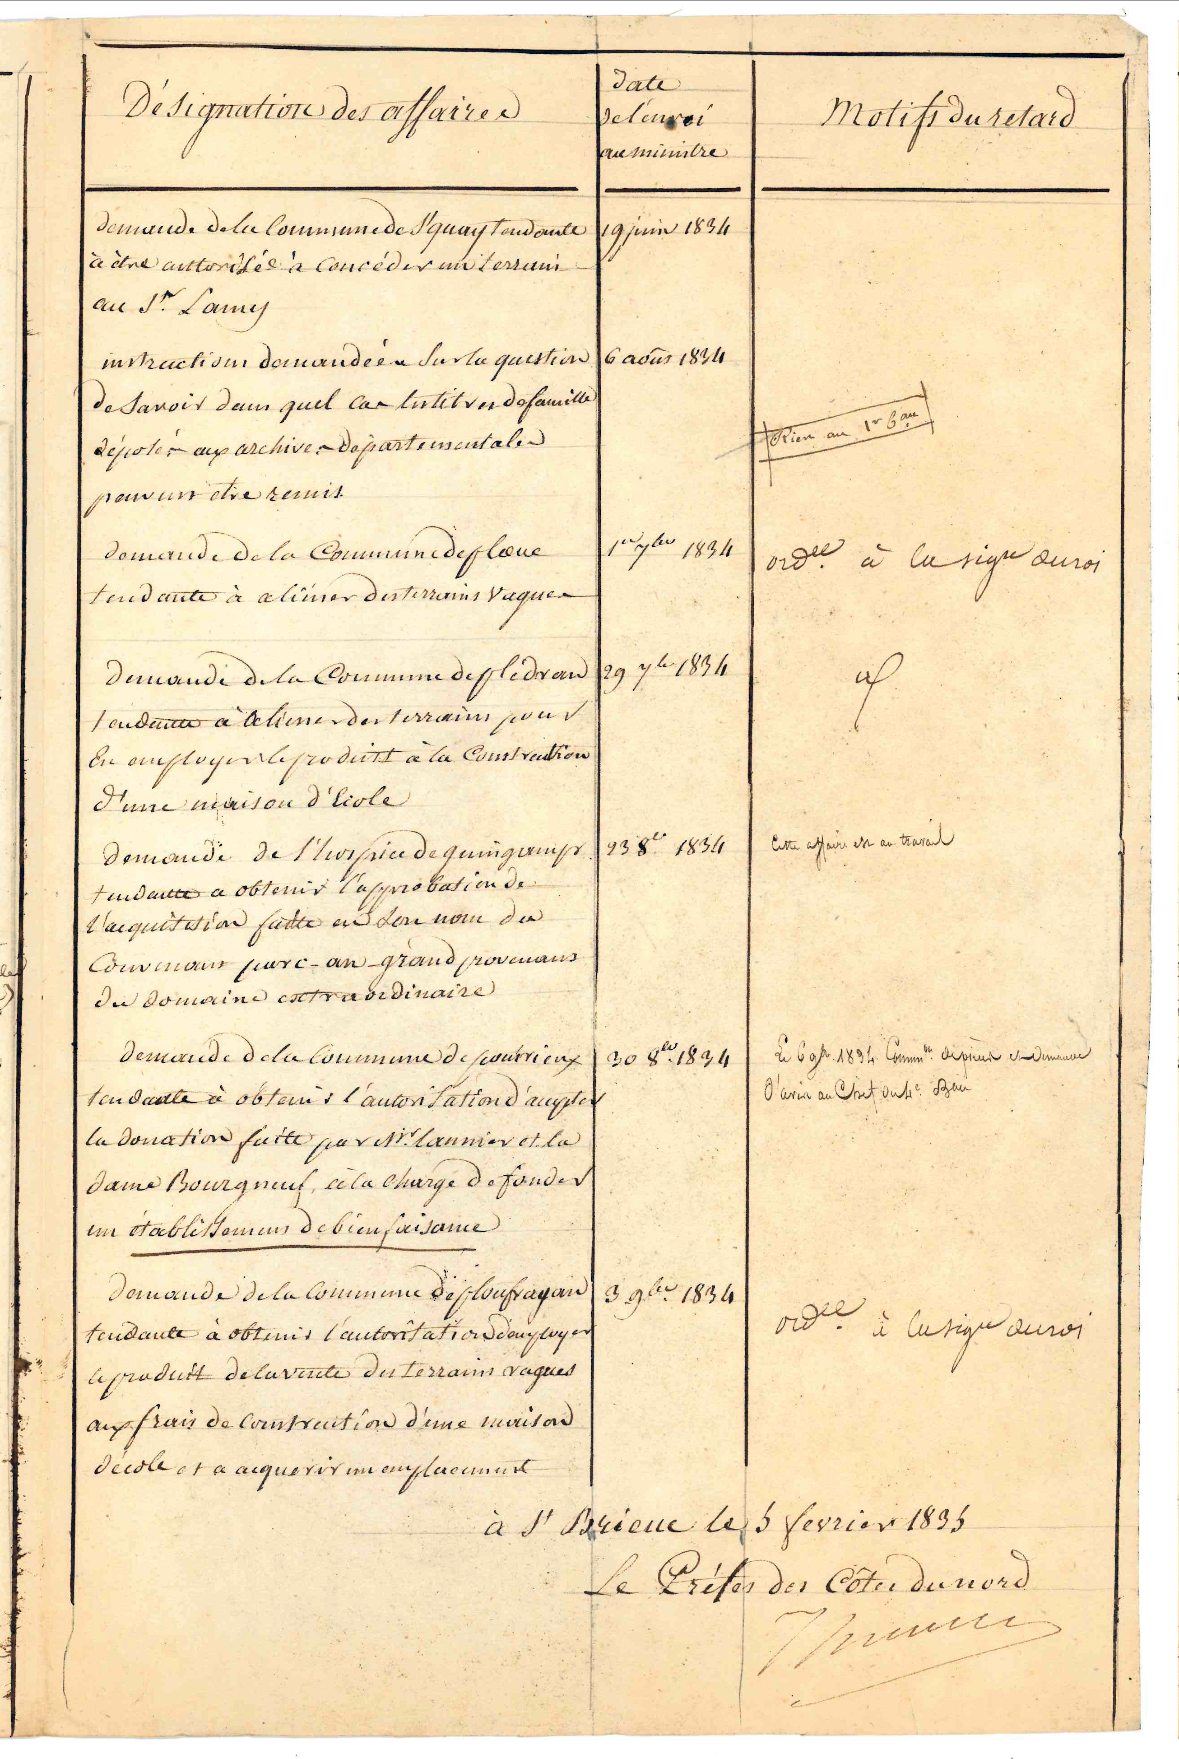 Désignation des affaires
date
de l'envoi
au ministre
Motifs du retard
demande de la Commune de St quay tendante
à être autorisée à concéder un terrain
au Sr. Lamy
19 juin 1834
instructions demandées sur la question
de savoir dans quel cas les titres de famille
déposés aux archives départementales
peuvent etre remis
6 août 1834
Rien au 1er bau
demande de la Commune de ploeuc
tendante à aliéner des terrains vagues
1er 7bre 1834
ordce. à la sigre du roi
demande de la Commune de plédran
tendante à aliéner des terrains pour
En employer le produit à la Construction
d'une maison d'école
29 7bre 1834
demande de l'hospice de guingamp
tendante a obtenir l'approbation de
l'acquisition faite en son nom du
Convenant parc-an-grand provenant
du domaine extraordinaire
23 8bre 1834
Cette affaire est au travail
demande de la Commune de pommrieux
tendante à obtenir l'autorisation d'accepter
la donation faite par Mr. launier et la
dame Bourgneuf, à la charge de fonder
un établissement de bienfaisance
30 8bre 1834
Le 6 9bre 1834. demande
d'avis au Chef du 4e Bau
demande de la Commune de ploufragan
tendante à obtenir l'autorisation d'employer
le produit de la vente des terrains vagues
aux frais de construction d'une maison
d'école et a acquerir un emplacement
3 9bre 1834
ordce. à la sigre du roi
à St Brieuc le 5 fevrier 1835
Le Préfet des Côtes du nord